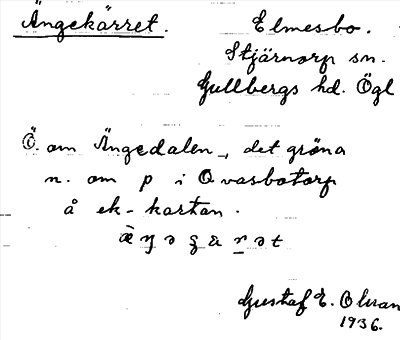 Ängekärret. Elmesbo.
Stjärnorp sn.
Gullbergs hd. Ögl
Ö. om Ängedalen, det gröna
n. om p i Qvasbotorp
å ek-kartan.
Gustaf E. Olvan
1936.